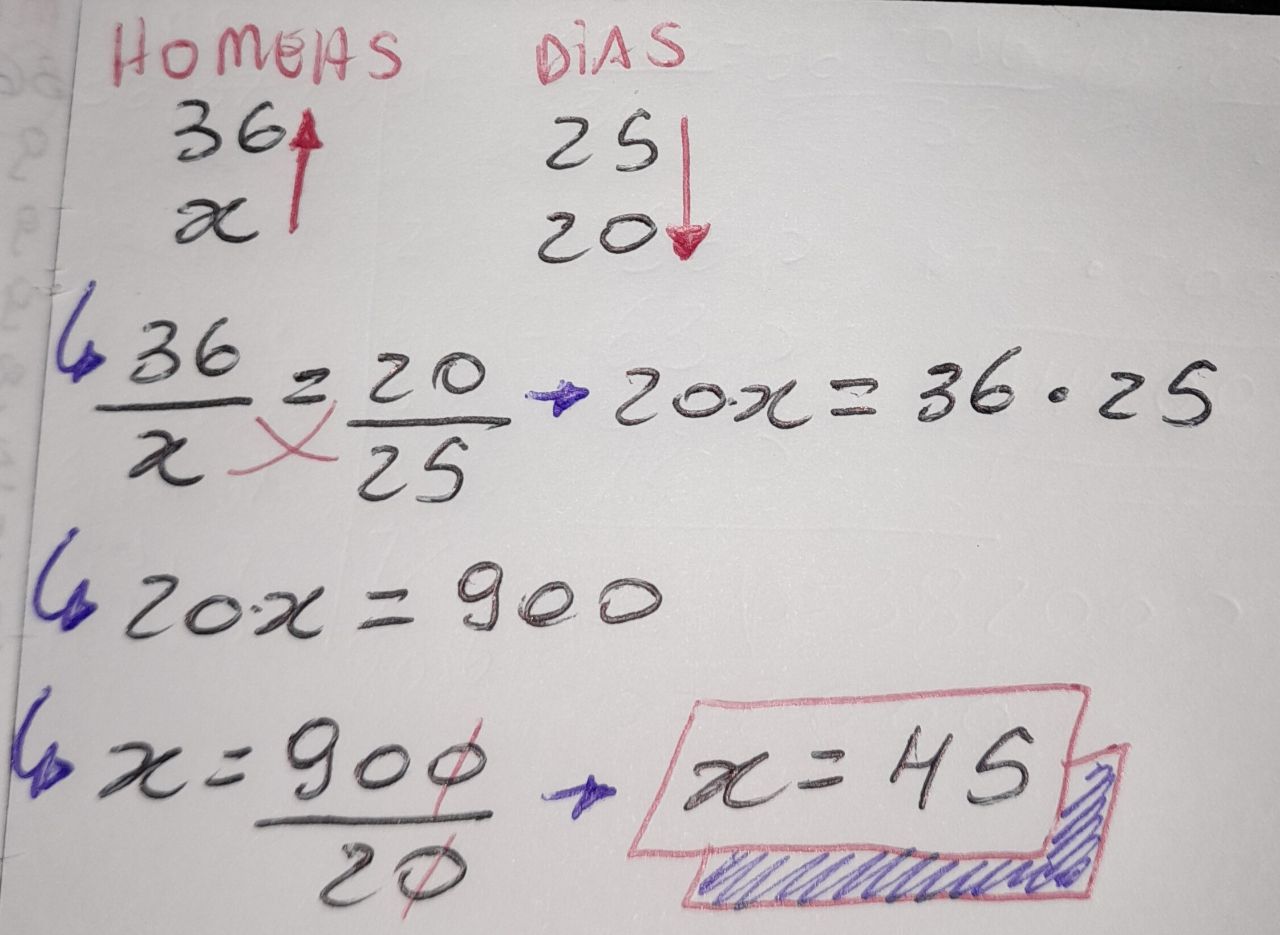 HOMENS DIAS
36 25
x 20
36/x = 20/25 → 20·x = 36 · 25
20·x = 900
x = 900/20 → x = 45